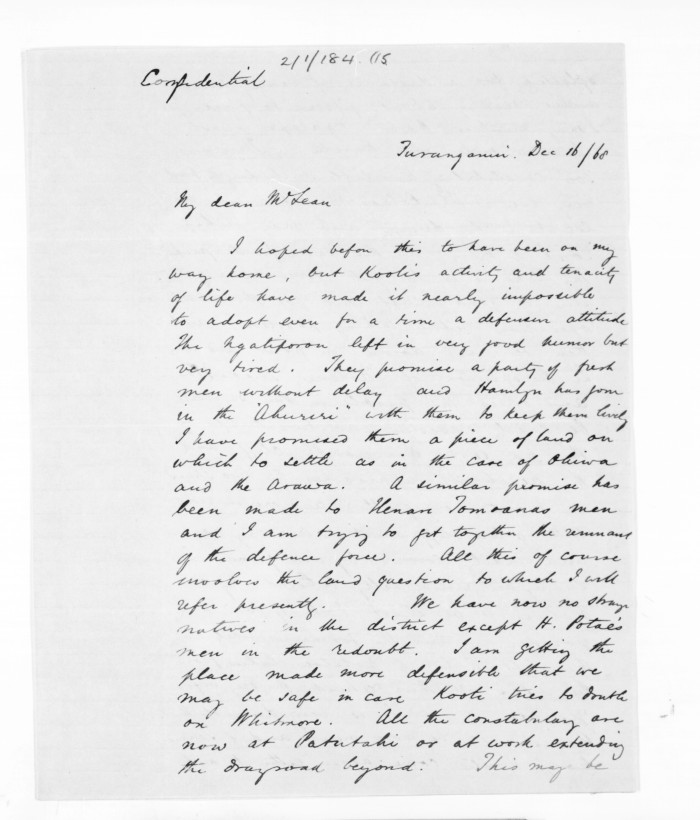 2/1/184. (15
Confidential
Turanganui. Dec 16/68
My dear McLean
I hoped before this to have been on my
way home, but Kootis activity and tenacity
of life have made it nearly impossible
to adopt even for a time a defensive attitude
The Ngatiporou left in very good humor but
very tired. They promise a party of fresh
men without delay and Hamlyn has gone
in the "Ahuriri" with them to keep them lively
I have promised them a piece of land on
which to settle as in the case of Ohiwa
and the Arawa. A similar promise has
been made to Henare Tomoanas men
and I am trying to get together the remnant
of the defence force. All this of course
involves the land question to which I will
refer presently. We have now no strange
natives in the district except H. Potae's
men in the redoubt. I am getting the
place made more defensible that we
may be safe in case Kooti tries to double
on Whitmore. All the constabulary are
now at Patutahi or at work extending
the drayroad beyond. This may be